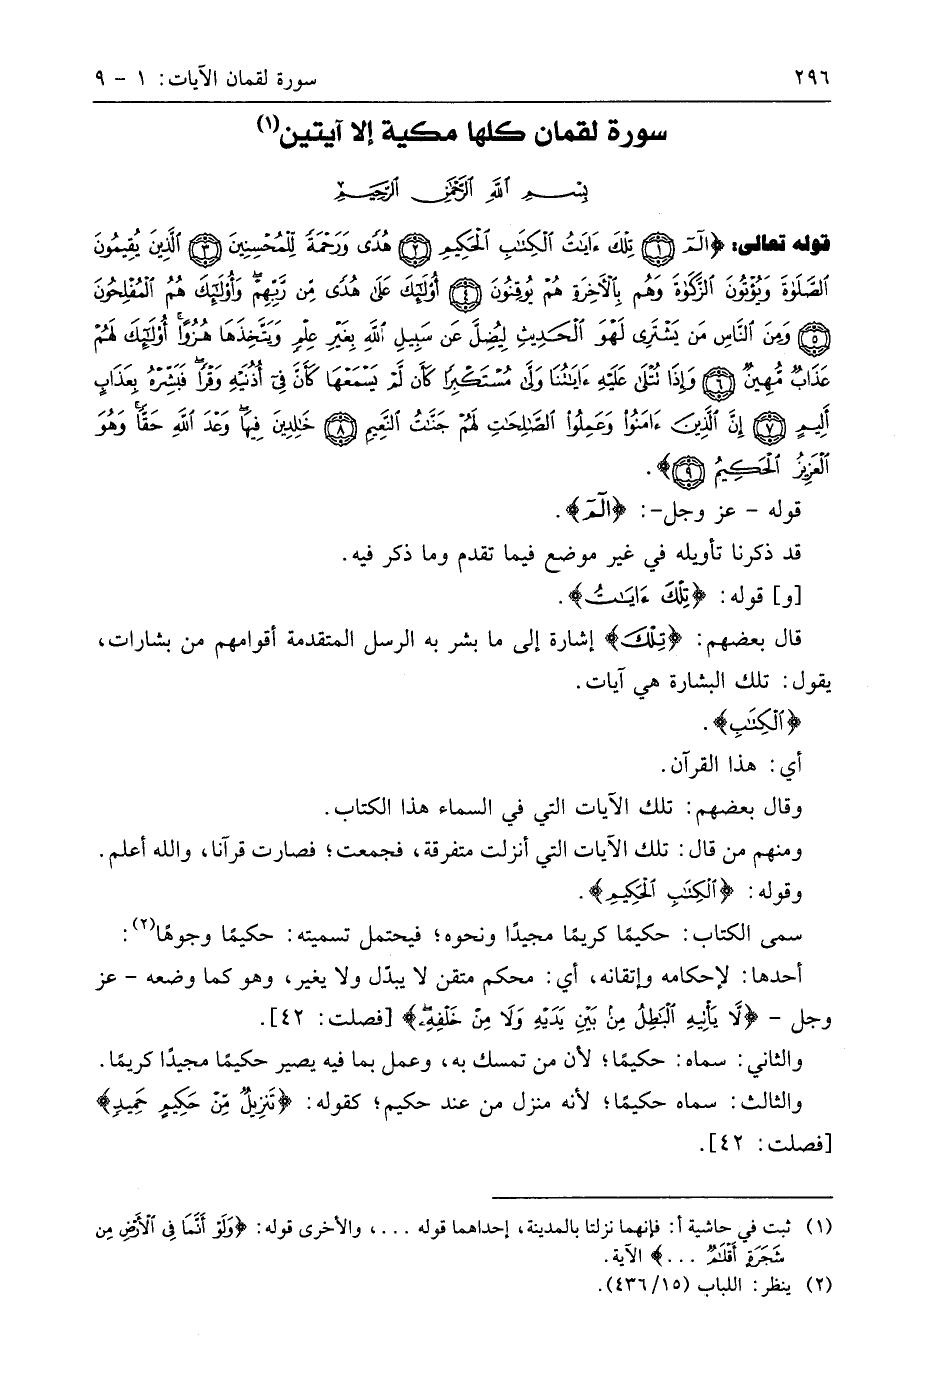 ٢٩٦ سورة لقمان الآيات: ١ - ٩
سورة لقمان كلها مكية إلا آيتين(١)
بِسْمِ اللَّهِ الرَّحْمَٰنِ الرَّحِيمِ
قوله تعالى: ﴿الٓمٓ ۝١ تِلْكَ ءَايَٰتُ ٱلْكِتَٰبِ ٱلْحَكِيمِ ۝٢ هُدًى وَرَحْمَةً لِّلْمُحْسِنِينَ ۝٣ ٱلَّذِينَ يُقِيمُونَ
ٱلصَّلَوٰةَ وَيُؤْتُونَ ٱلزَّكَوٰةَ وَهُم بِٱلْأَخِرَةِ هُمْ يُوقِنُونَ ۝٤ أُوْلَٰٓئِكَ عَلَىٰ هُدًى مِّن رَّبِّهِمْۖ وَأُوْلَٰٓئِكَ هُمُ ٱلْمُفْلِحُونَ
۝٥ وَمِنَ ٱلنَّاسِ مَن يَشْتَرِى لَهْوَ ٱلْحَدِيثِ لِيُضِلَّ عَن سَبِيلِ ٱللَّهِ بِغَيْرِ عِلْمٍ وَيَتَّخِذَهَا هُزُوًاۚ أُوْلَٰٓئِكَ لَهُمْ
عَذَابٌ مُّهِينٌ ۝٦ وَإِذَا تُتْلَىٰ عَلَيْهِ ءَايَٰتُنَا وَلَّىٰ مُسْتَكْبِرًا كَأَن لَّمْ يَسْمَعْهَا كَأَنَّ فِىٓ أُذُنَيْهِ وَقْرًاۖ فَبَشِّرْهُ بِعَذَابٍ
أَلِيمٍ ۝٧ إِنَّ ٱلَّذِينَ ءَامَنُوا۟ وَعَمِلُوا۟ ٱلصَّٰلِحَٰتِ لَهُمْ جَنَّٰتُ ٱلنَّعِيمِ ۝٨ خَٰلِدِينَ فِيهَاۖ وَعْدَ ٱللَّهِ حَقًّاۚ وَهُوَ
ٱلْعَزِيزُ ٱلْحَكِيمُ ۝٩﴾.
قوله - عز وجل-: ﴿الٓمٓ﴾.
قد ذكرنا تأويله في غير موضع فيما تقدم وما ذكر فيه.
[و] قوله: ﴿تِلْكَ ءَايَٰتُ﴾.
قال بعضهم: ﴿تِلْكَ﴾ إشارة إلى ما بشر به الرسل المتقدمة أقوامهم من بشارات،
يقول: تلك البشارة هي آيات.
﴿ٱلْكِتَٰبِ﴾.
أي: هذا القرآن.
وقال بعضهم: تلك الآيات التي في السماء هذا الكتاب.
ومنهم من قال: تلك الآيات التي أنزلت متفرقة، فجمعت؛ فصارت قرآنا، والله أعلم.
وقوله: ﴿ٱلْكِتَٰبِ ٱلْحَكِيمِ﴾.
سمى الكتاب: حكيمًا كريمًا مجيدًا ونحوه؛ فيحتمل تسميته: حكيمًا وجوهًا(٢):
أحدها: لإحكامه وإتقانه، أي: محكم متقن لا يبدّل ولا يغير، وهو كما وضعه - عز
وجل - ﴿لَّا يَأْتِيهِ ٱلْبَٰطِلُ مِنۢ بَيْنِ يَدَيْهِ وَلَا مِنْ خَلْفِهِۦۖ﴾ [فصلت: ٤٢].
والثاني: سماه: حكيمًا؛ لأن من تمسك به، وعمل بما فيه يصير حكيمًا مجيدًا كريمًا.
والثالث: سماه حكيمًا؛ لأنه منزل من عند حكيم؛ كقوله: ﴿تَنزِيلٌ مِّنْ حَكِيمٍ حَمِيدٍ﴾
[فصلت: ٤٢].
(١) ثبت في حاشية أ: فإنهما نزلتا بالمدينة، إحداهما قوله ...، والأخرى قوله: ﴿وَلَوْ أَنَّمَا فِى ٱلْأَرْضِ مِن
شَجَرَةٍ أَقْلَٰمٌ ...﴾ الآية.
(٢) ينظر: اللباب (٤٣٦/١٥).